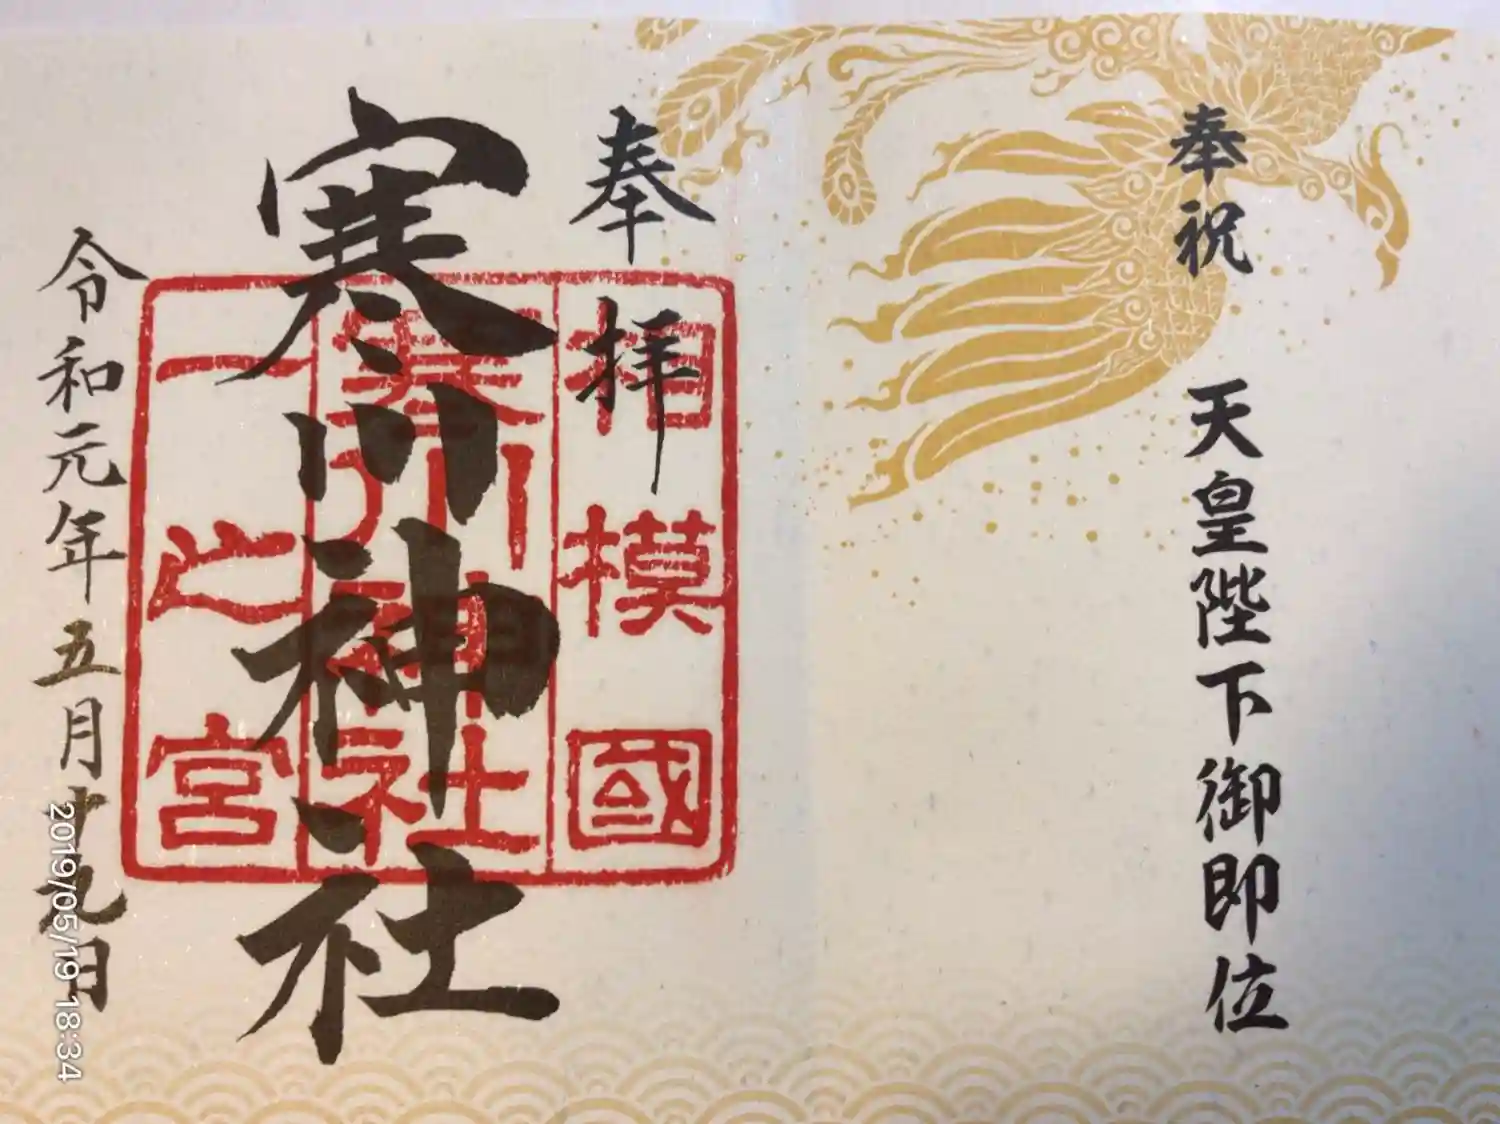 奉祝 天皇陛下御即位
奉拝
寒川神社
令和元年五月十九日
相模國
寒川神社
一之宮
2019/05/19 18:34